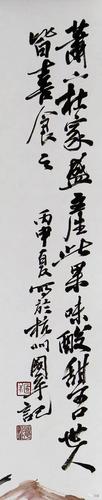 萧山杜家盛产此果味酸甜可口世人
皆喜食之
丙申夏写于杭州国平记